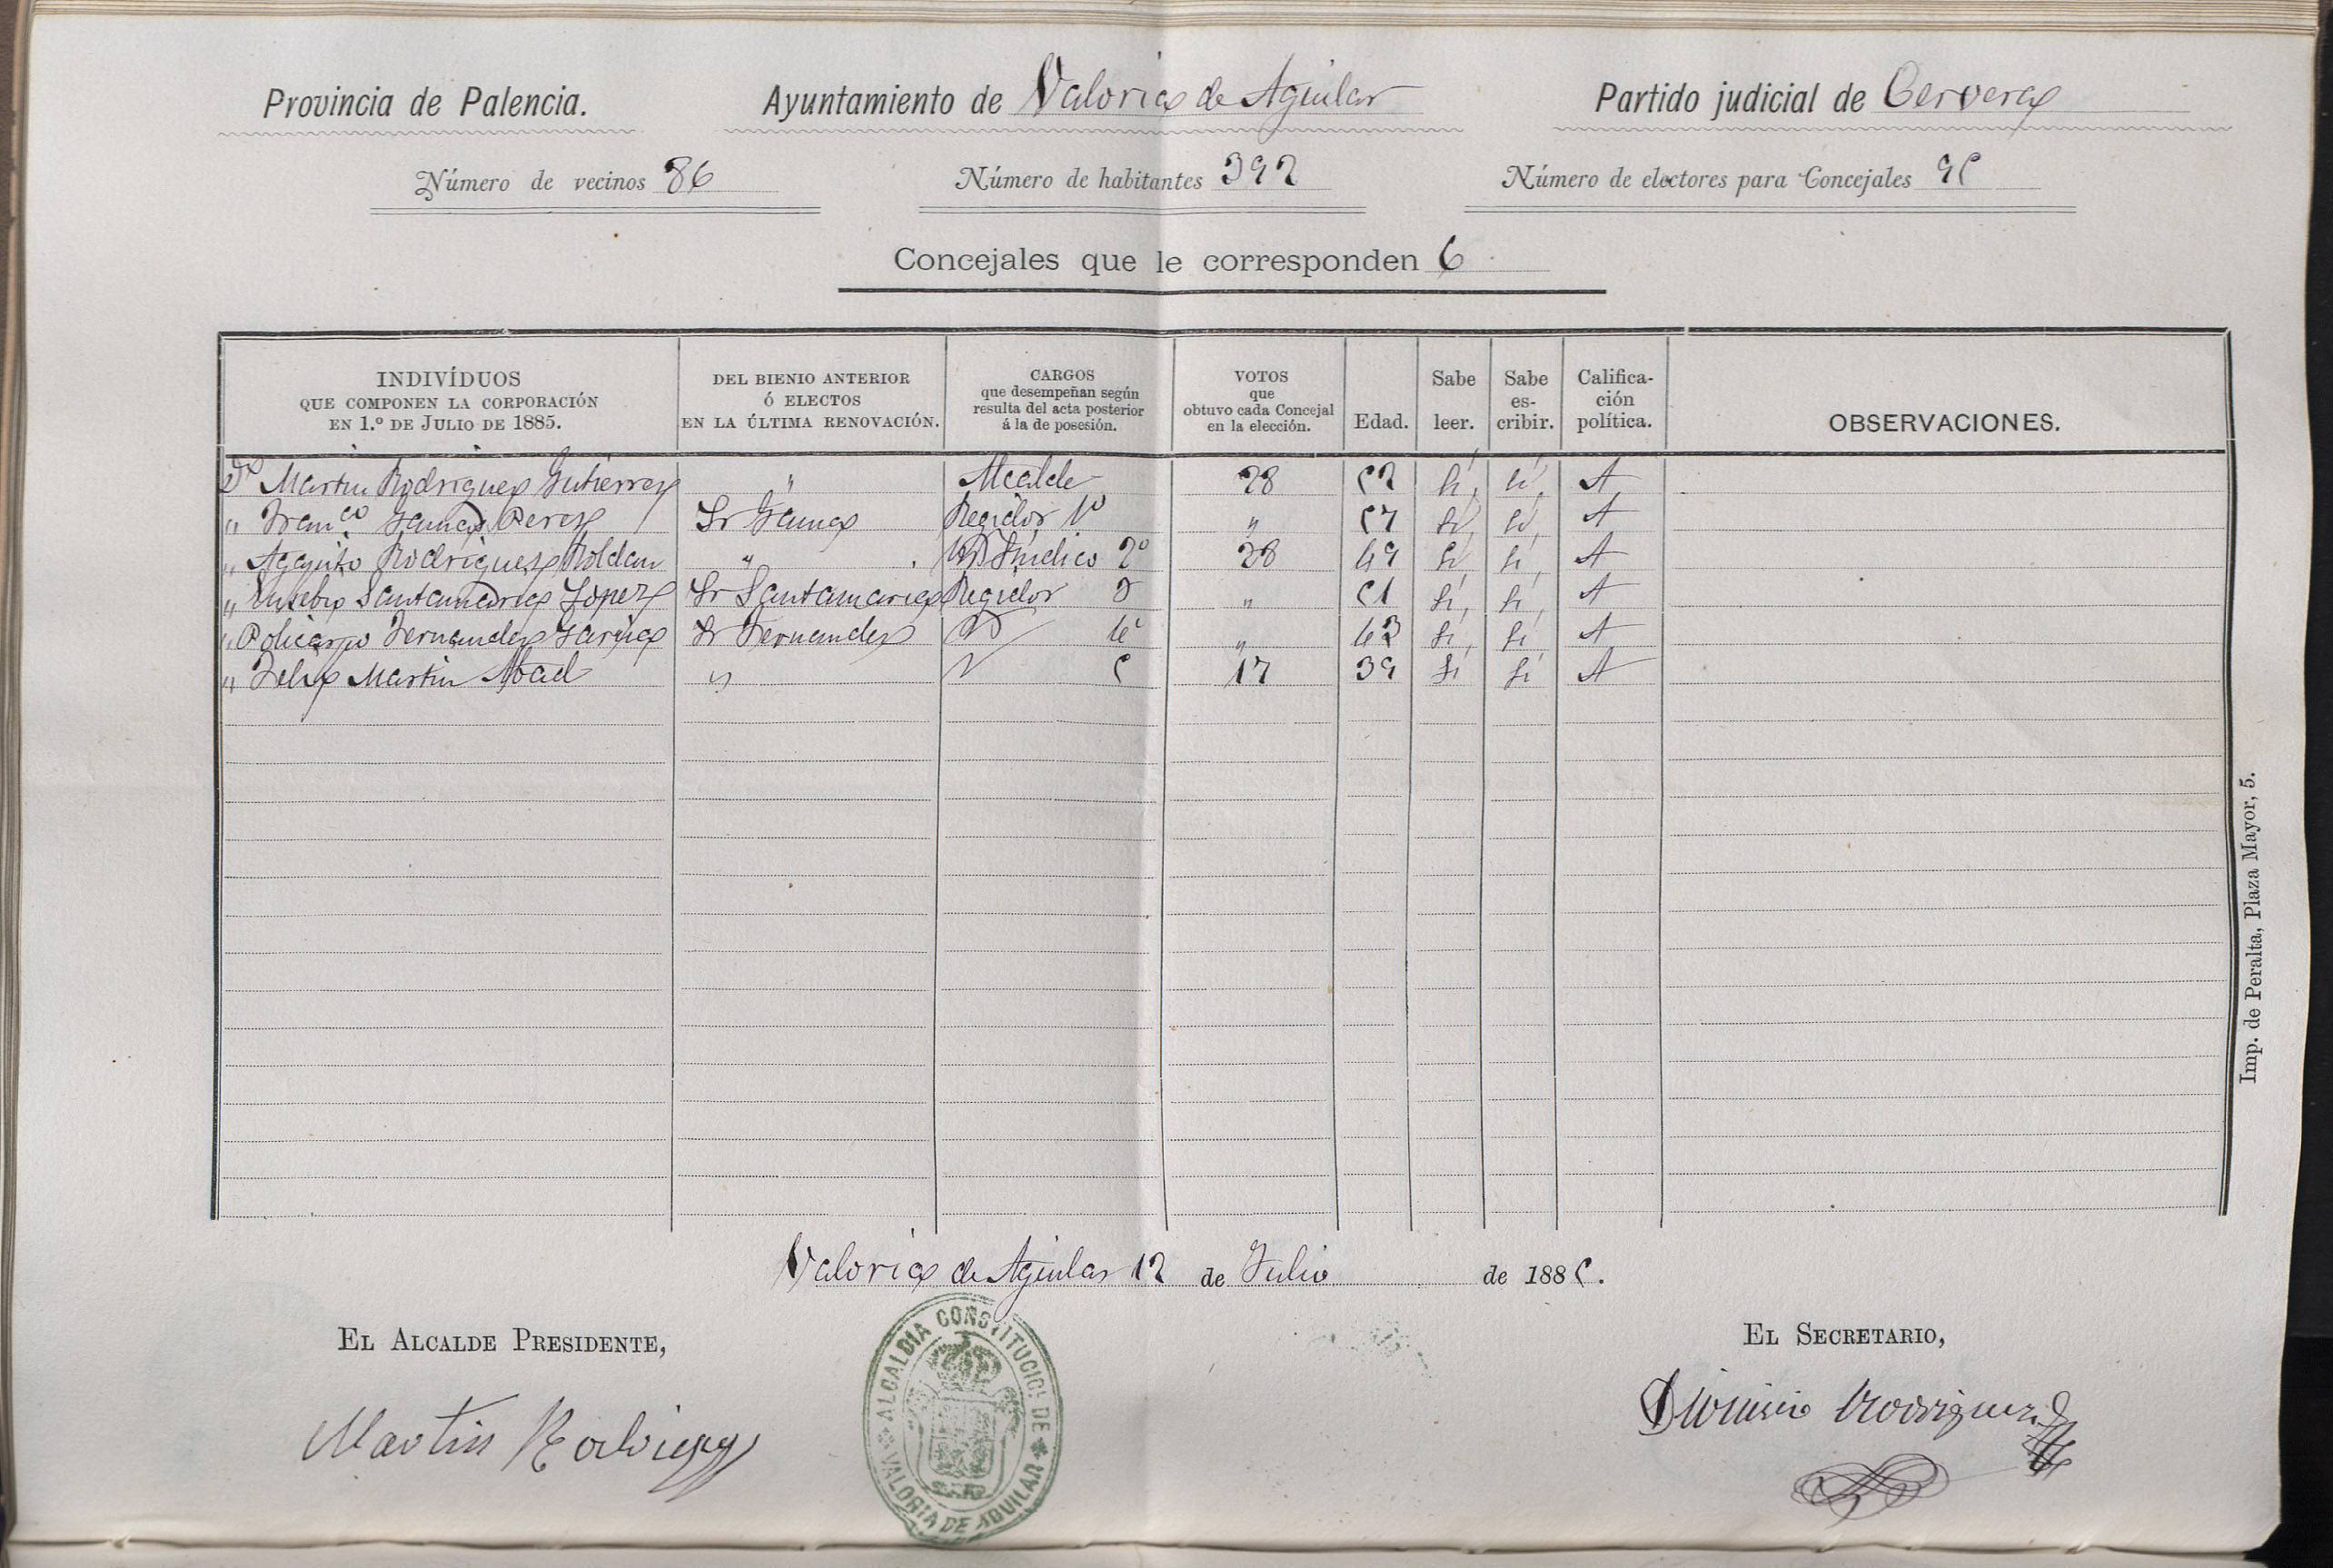 Provincia de Palencia. Ayuntamiento de Valoria de Aguilar Partido judicial de Cervera
Número de vecinos 86 Número de habitantes 392 Número de electores para Concejales 95
Concejales que le corresponden 6
INDIVÍDUOS QUE COMPONEN LA CORPORACIÓN EN 1.º DE JULIO DE 1885. DEL BIENIO ANTERIOR Ó ELECTOS EN LA ÚLTIMA RENOVACIÓN. CARGOS que desempeñan según resulta del acta posterior á la de posesión. VOTOS que obtuvo cada Concejal en la elección. Edad. Sabe leer. Sabe es-cribir. Califica-ción política. OBSERVACIONES.
Dn Martin Rodriguez Gutierrez " Alcalde 28 52 Si, Si, A
" Franco Perez Sr Regidor 1º " 57 Si, Si, A
" Agapito Rodriguez Roldan " Sindico 2º 28 49 Si Si, A
" Eusebio Santamaria Lopez Sr Santamaria Regidor 3 " 51 Si, Si, A
" Policarpo Fernandez Sr Fernandez 4º " 43 Si, Si A
" Felix Martin Abad " 5 17 39 Si Si A
Valoria de Aguilar 12 de Julio de 1885.
EL ALCALDE PRESIDENTE, EL SECRETARIO,
Martin Rodriguez Dionisio Rodriguez
ALCALDIA CONSTITUCIOL DE VALORIA DE AGUILAR
Imp. de Peralta, Plaza Mayor, 5.